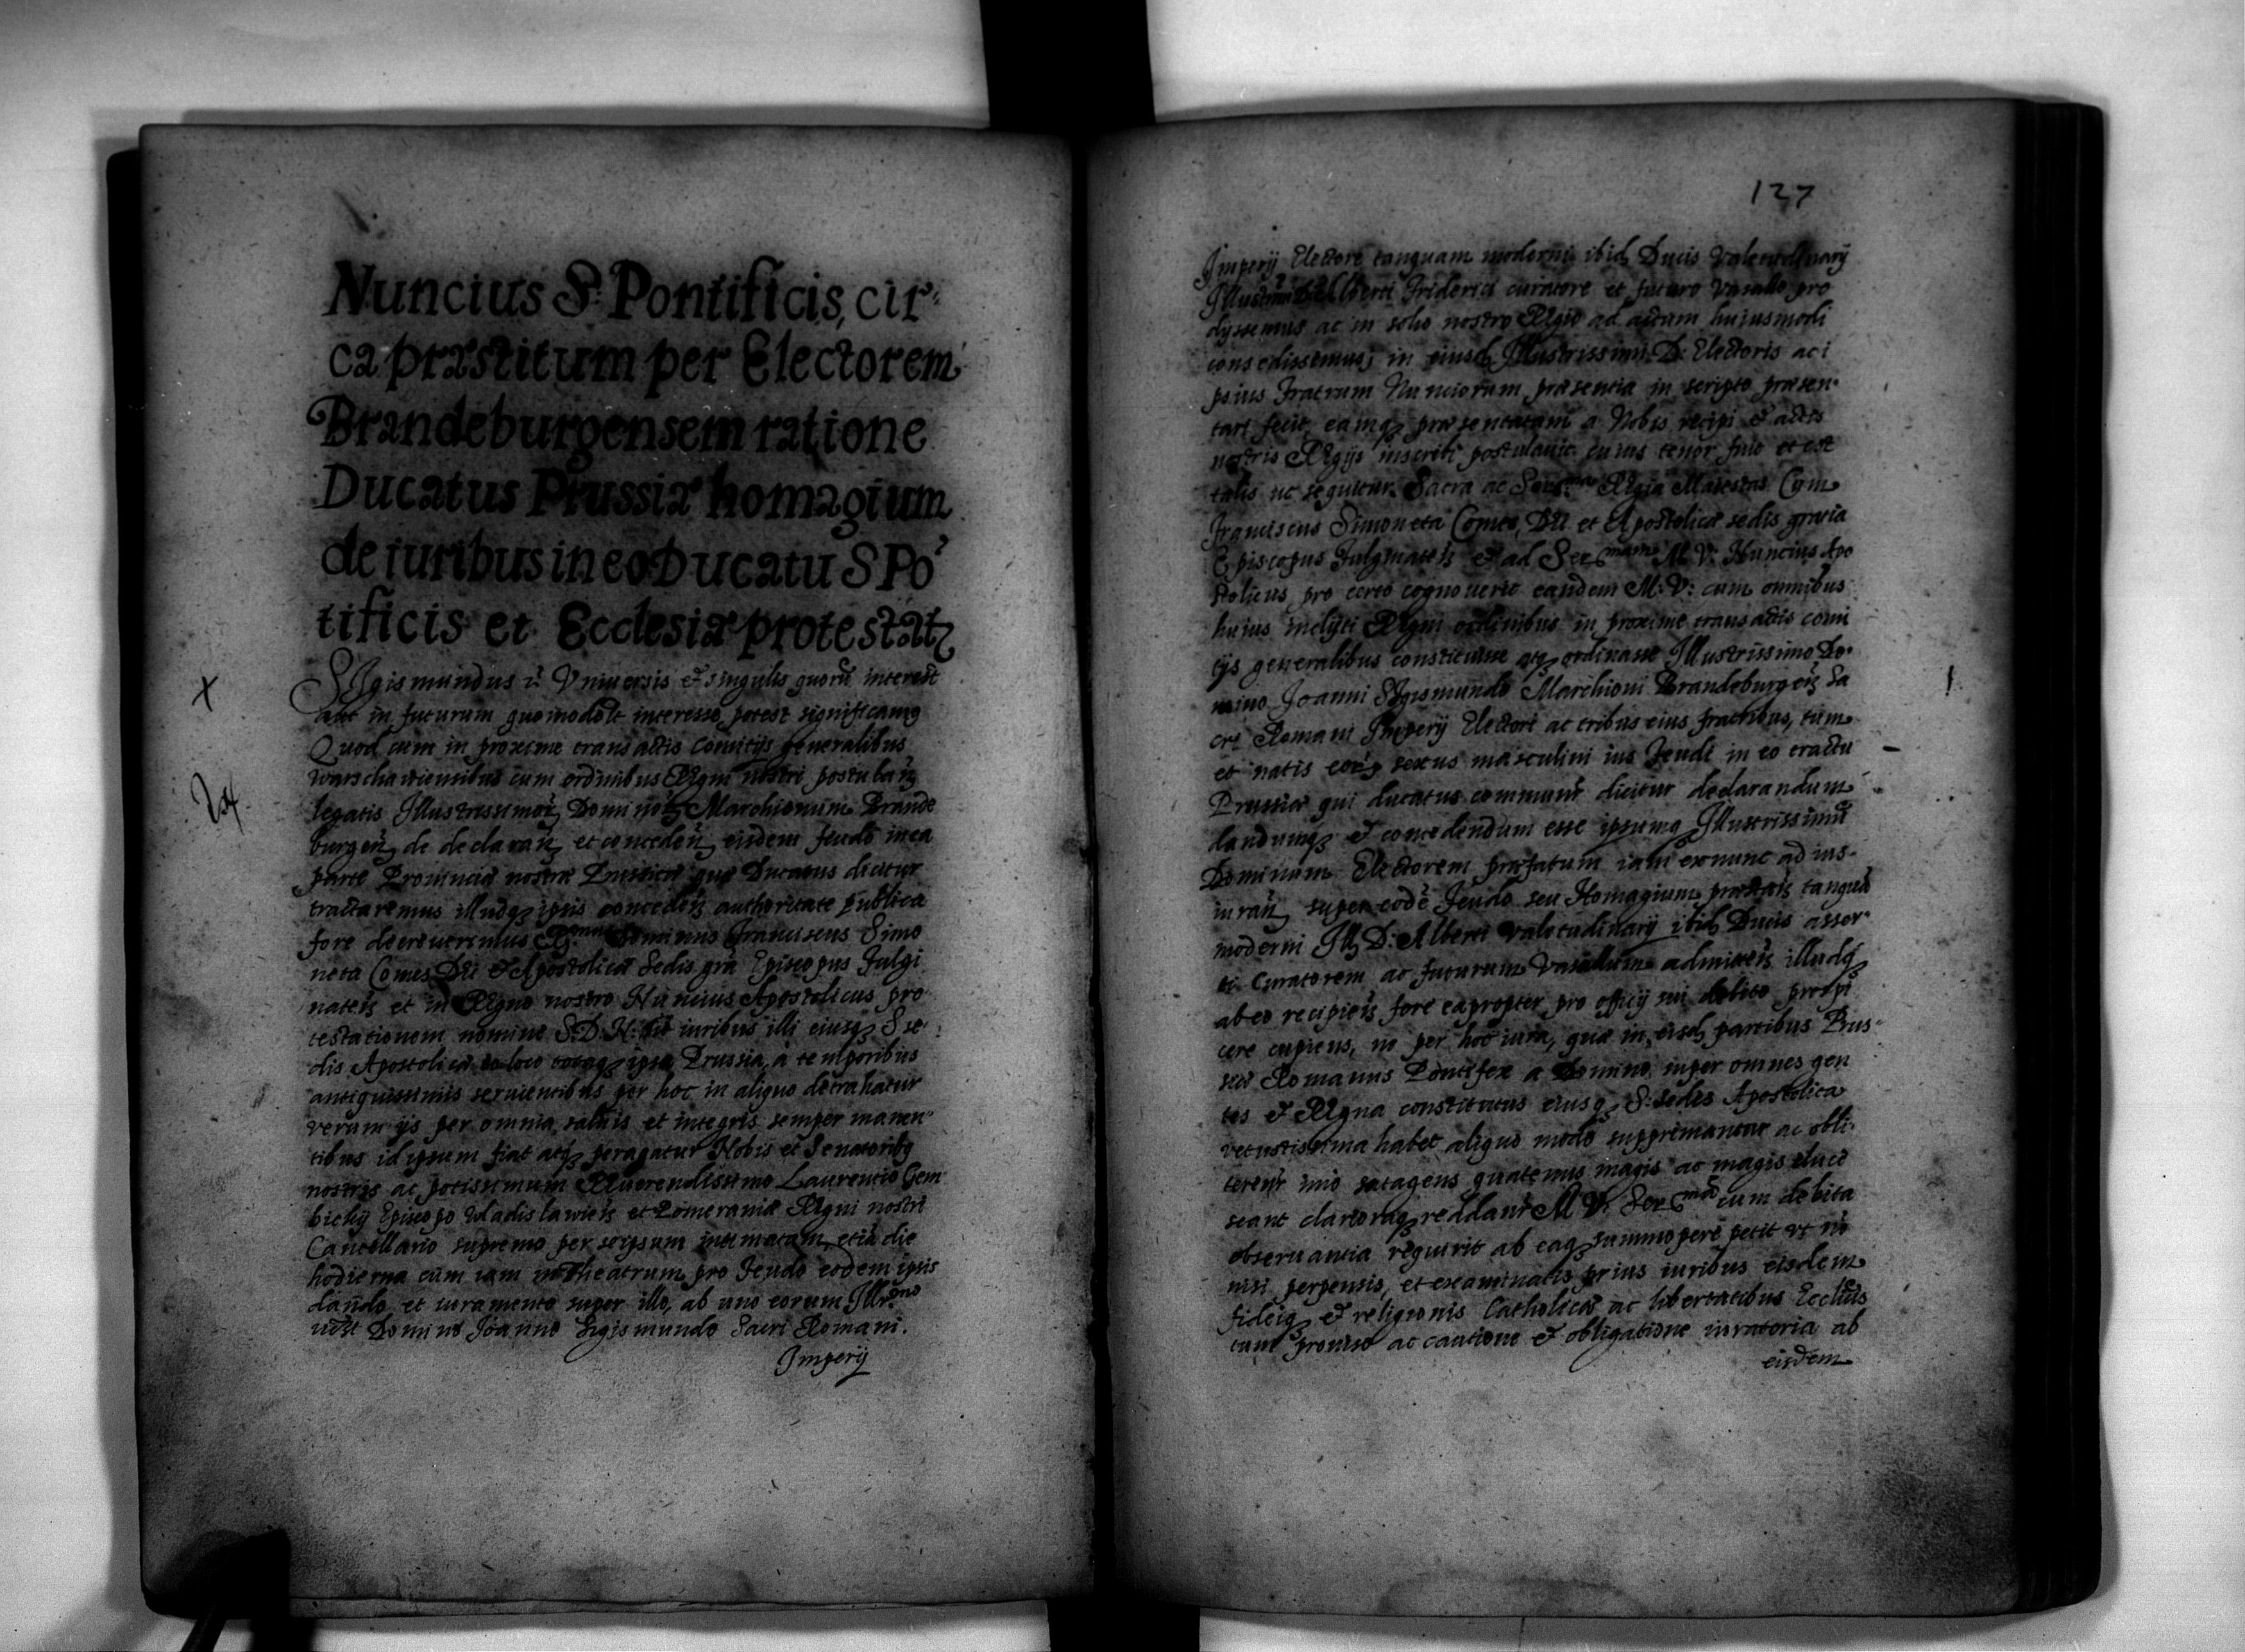 Nuncius S. Pontificis, cir-
ca præstitum per Electorem
Brandeburgensem ratione
Ducatus Prussiæ homagium
de iuribus in eo Ducatu S Po
tificis et Ecclesiæ protestat
Sigismundus Vniuersis et singulis quorū interest
aut in futurum quomodolt interesse potest significamq
Quod cum in proxime transactis Comitijs generalibus
warschawiensibus cum ordinibus Regni nostri postulan
legatis Illustrissimor Dominor Marchionum Brande
burgen de declaran et conceden eisdem feudo in ea
parte Prouinciæ nostræ Prussiæ quæ Ducatus dicitur
tractaremus illudq ipsis conceden authoritate publica
fore decreuerimus Rmus Dominus Franciscus Simo
neta Comes Dei et Apostolicæ Sedis gra Episcopus Fulgi
naten et in Regno nostro Nuncius Apostolicus pro
testationem nomine S.D.N. iuribus illi eiusq S se
dis Apostolicæ eo loco totaq ipsa Prussia, a temporibus
antiquissimis seruientibus per hoc in aliquo detrahatur
verum ijs per omnia saluis et integris semper manen
tibus id ipsum fiat atq peragatur Nobis et Senatoribq
nostris ac potissimum Reuerendissimo Laurentio Gem
bicky Episcopo Wladislawien et Pomeraniæ Regni nostri
Cancellario supremo per seipsum intimatam etiā die
hodierna cum iam in Theatrum pro feudo eodem ipsis
dando et iuramento super illo, ab uno eorum Illrmo
Domino Joanne Sigismundo Sacri Romani.
Imperij
127
Imperij Electore tanquam moderni ibid Ducis Valetudinarij
Alberti Friderici curatore et futuro Vasallo pro
dyssemus ac in solio nostro Regio ad actum huiusmodi
consedissemus, in eiusd Illustrissimi D: Electoris ac i
psius Fratrum Nunciorum præsentia in scripto præsen-
tari fecit, eamq præsentatam a Nobis recipi et actis
nostris Regijs inscribi postulauit cuius tenor fuit et est
talis ut sequitur. Sacra ac Serma Regia Maiestas Cum
Franciscus Simoneta Comes, Dei et Apostolicæ sedis gratia
Episcopus Fulginaten et ad Sermam M. V: Nuncius Apo
stolicus pro certo cognouerit eandem M. V: cum omnibus
huius inclyti Regni ordinibus in proxime transactis comi
tijs generalibus constituisse atq ordinasse Illustrissimo Do-
mino Joanni Sigismundo Marchioni Brandeburgen Sa
cri Romani Imperij Electori ac tribus eius fratribus, tum
et natis eorq sexus masculini ius feudi in eo tractu
Prussiæ qui ducatus communr dicitur declarandum
dandumq et concedendum esse ipsumq Illustrissimū
Dominum Electorem præfatum iam ex nunc ad ius-
iuran super eodē feudo seu Homagium præstan tanquā
moderni Ill D: Alberti Valetudinarij ibid Ducis asser-
ti Curatorem ac futurum Vasallum admitten illudq
ab eo recipien fore eapropter pro officij sui debito prospi
cere cupiens, ne per hoc iura, quæ in eisd partibus Prus-
siæ Romanus Pontifex a Domino super omnes gen
tes et Regna constitutus eiusq S: Sedes Apostolica
vetustissima habet aliquo modo supprimantur ac obli-
terenr imo satagens quatenus magis ac magis eluce
scant clarioraq reddant M V: Serma cum debita
obseruantia requirit ab eaq summopere petit vt nō
nisi perpensis, et examinatis prius iuribus eisdem
fideiq et religionis Catholicæ ac libertatibus Ecclesia
tum prouiso ac cautione et obligatione iuratoria ab
eisdem